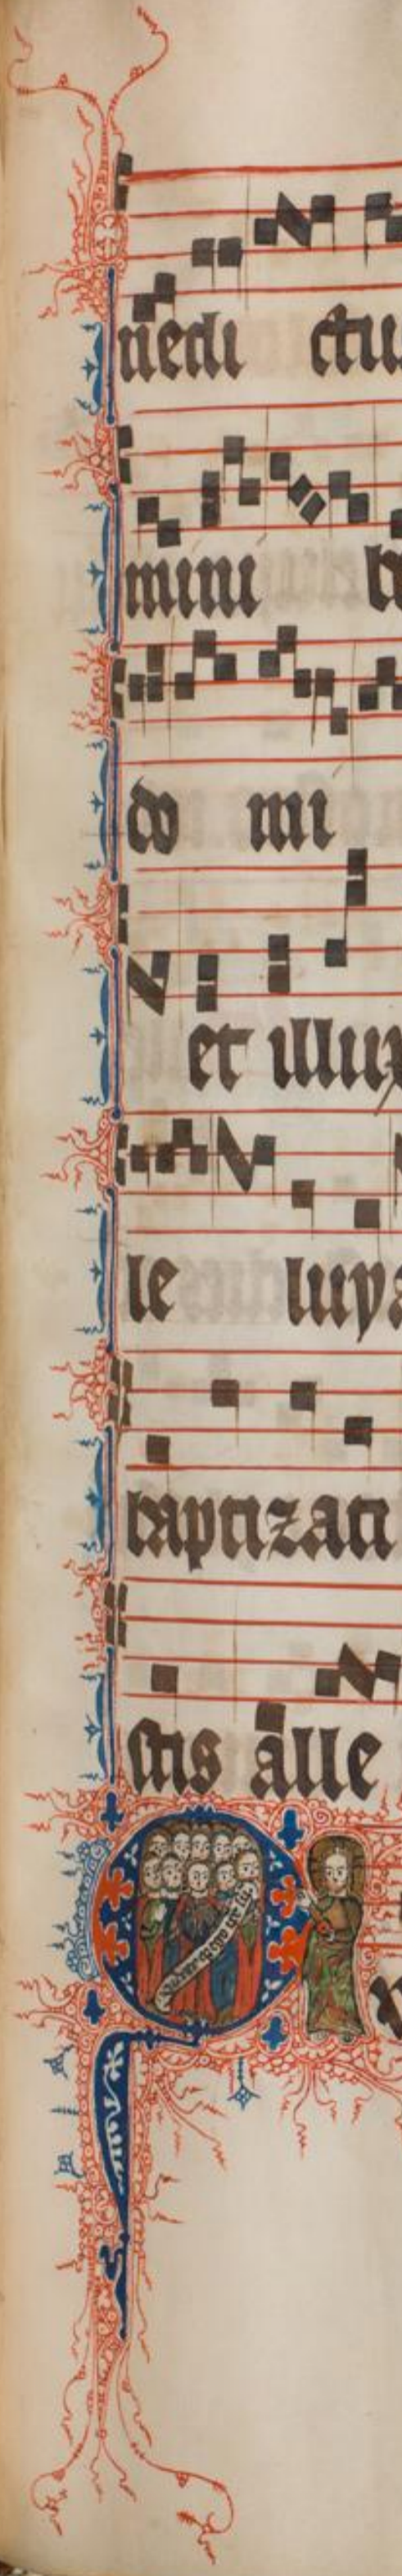 nedi ctu
mini
do mi
et illux
le luya
baptizati
stis alle